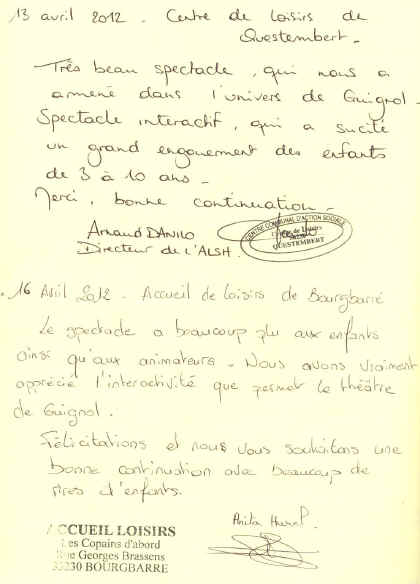 13 avril 2012. Centre de Loisirs de
Questembert.
Très beau spectacle, qui nous a
amené dans l'univers de Guignol.
Spectacle interactif, qui a sucité
un grand engouement des enfants
de 3 à 10 ans.
Merci, bonne continuation.
Arnaud DANILO
Directeur de l'ALSH.
CENTRE COMMUNAL D'ACTION SOCIALE
QUESTEMBERT
16 Avril 2012. Accueil de loisirs de Bourgbarré
Le spectacle a beaucoup plu aux enfants
ainsi qu'aux animateurs. Nous avons vraiment
apprécié l'interactivité que permet le théâtre
de Guignol.
Félicitations et nous vous souhaitons une
bonne continuation avec beaucoup de
rires d'enfants.
Anita
ACCUEIL LOISIRS
Les Copains d'abord
Rue Georges Brassens
35230 BOURGBARRE